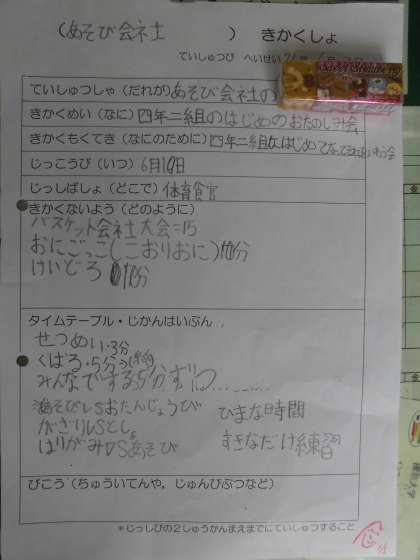 (あそび会社
) きかくしょ
ていしゅつび へいせい
ていしゅつしゃ(だれが)あそび会社の
きかくめい(なに)四年二組のはじめのおたのしみ会
きかくもくてき(なにのために)四年二組になって
じっこうび(いつ)6月10日
じっしばしょ(どこで)体育館
きかくないよう(どのように)
バスケット会社大会=15
おにごっこ(こおりおに)10分
けいどろ 10分
タイムテーブル・じかんはいぶん
せつめい・3分
くばる・5分
みんなでする5分ずつ
あそびVSおたんじょうび
かざりVSとしょ
はりがみVSあそび
ひまな時間
すきなだけ練習
びこう(ちゅういてんや,じゅんびぶつなど)
*じっしびの2しゅうかんまえまでにていしゅつすること